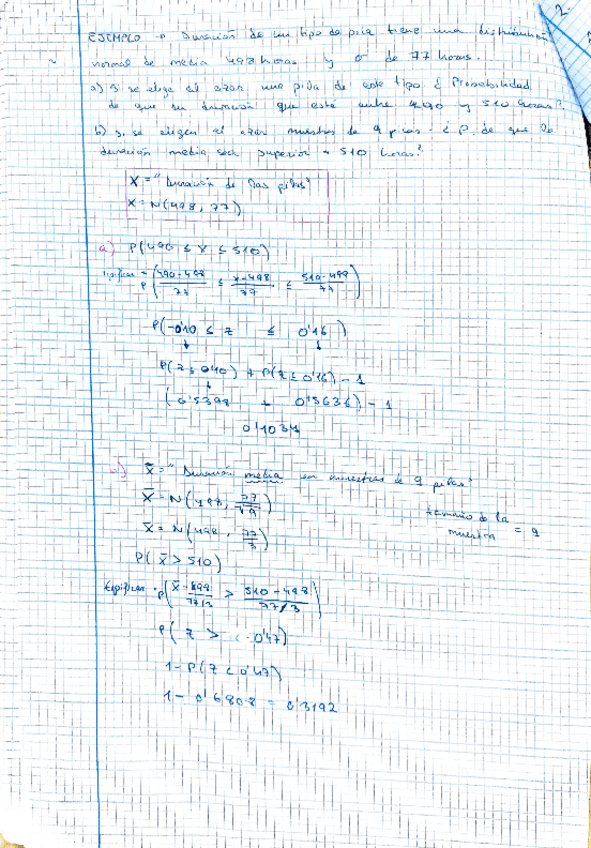 2.
EJEMPLO → Duración de un tipo de pila tiene una distribución
normal de media 498 horas y σ de 77 horas.
a) Si se elige al azar una pila de este tipo ¿Probabilidad
de que su duración que esté entre 490 y 510 horas?
b) si se eligen al azar muestras de 9 pilas. ¿P. de que la
duración media sea superior a 510 horas?
X = "Duración de las pilas"
X = N(498, 77)
a) P(490 ≤ X ≤ 510)
tipificar = P(490-498/77 ≤ x-498/77 ≤ 510-498/77)
P(-0'10 ≤ z ≤ 0'16)
P(z ≤ 0'10) + P(z ≤ 0'16) - 1
(0'5398 + 0'5636) - 1
0'1034
X̄ = "Duración media en muestras de 9 pilas"
X̄ = N(498, 77/√9)
tamaño de la muestra = 9
X̄ = N(498, 77/3)
P(X̄ > 510)
tipificar P(X̄-498/77/3 > 510-498/77/3)
P(z > 0'47)
1 - P(z < 0'47)
1 - 0'6808 = 0'3192